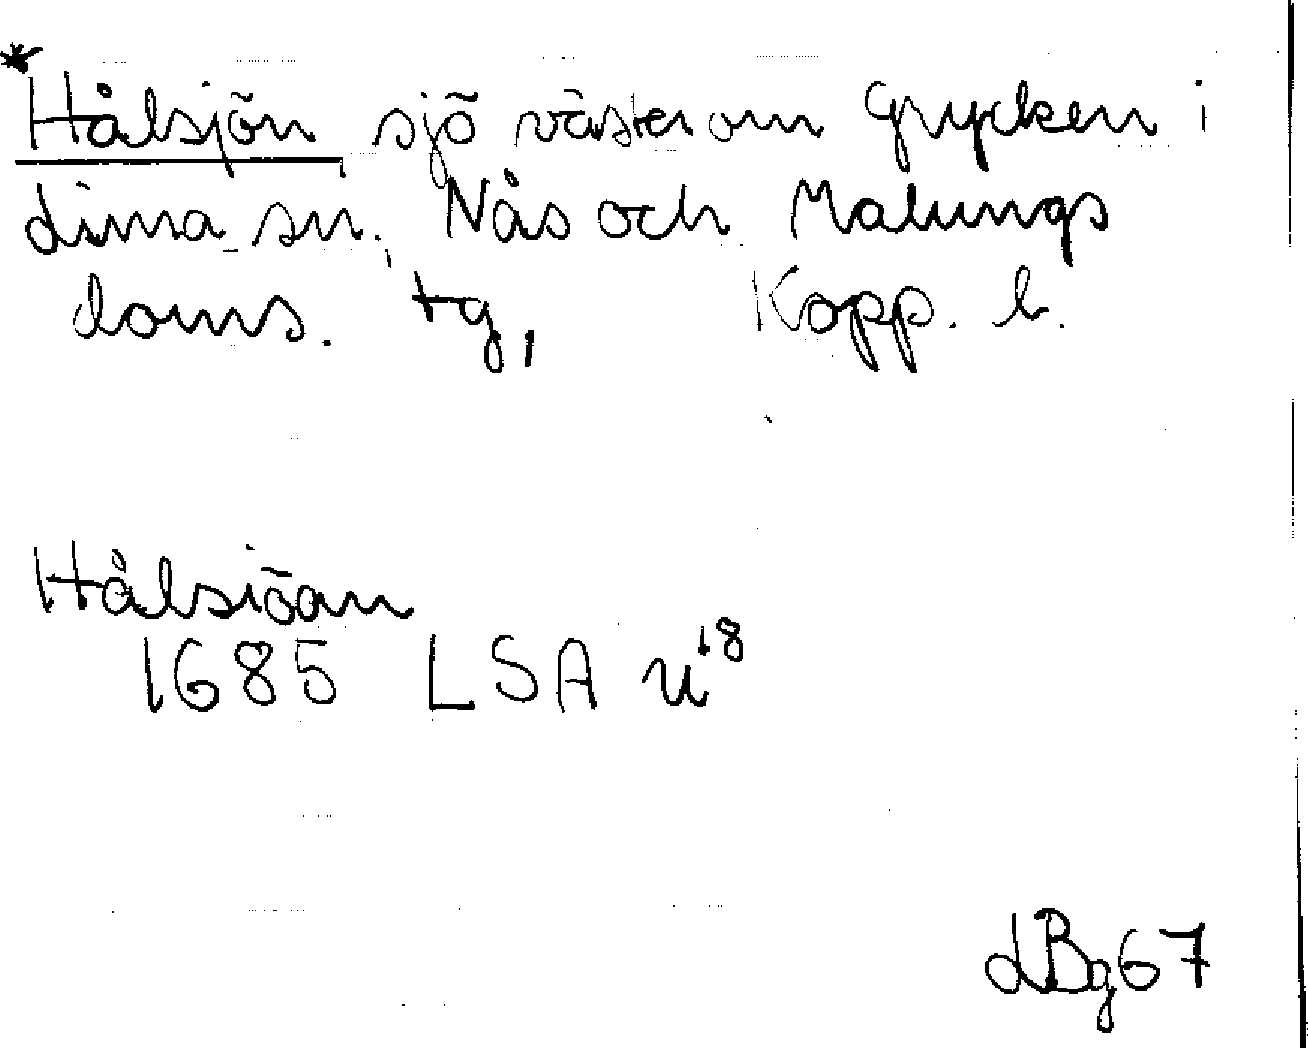 *Hålsjön sjö väster om Grycken i
Lima sn. Nås och Malungs
doms. tg, Kopp. l.
Hålsiöan
1685 LSA u18
LBg67